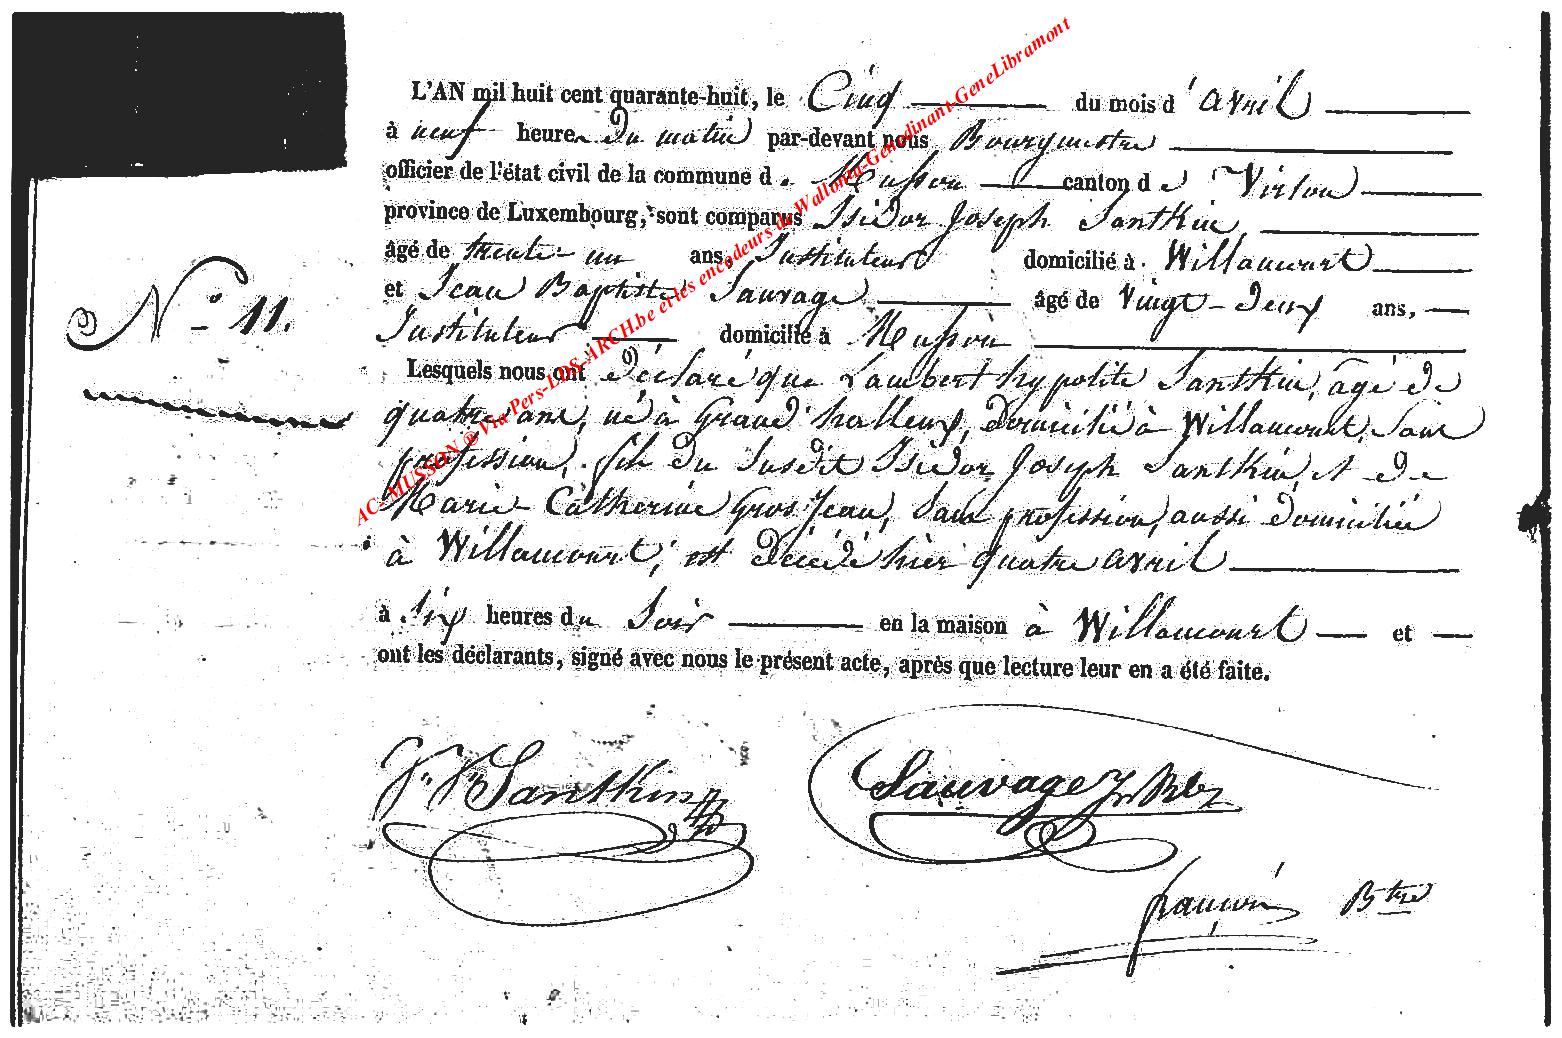 L'AN mil huit cent quarante-huit, le Cinq du mois d'avril
à neuf heures du matin par-devant nous Bourgmestre
officier de l'état civil de la commune de Musson canton de Virton
province de Luxembourg, sont comparus Isidor Joseph Santkin,
âgé de trente-un ans, Instituteur domicilié à Willancourt
et Jean Baptiste Sauvage âgé de Vingt-deux ans,
Instituteur domicilié à Musson
Lesquels nous ont déclaré que Lambert hypolite Santkin, âgé de
quatre ans, né à Grand halleux, domicilié à Willancourt, sans
profession, fils du susdit Isidor Joseph Santkin, et de
Marie Catherine Gros Jean, sans profession, aussi domiciliée
à Willancourt, est décédé hier quatre avril
N° 11.
à Six heures du Soir en la maison à Willancourt et
ont les déclarants, signé avec nous le présent acte, après que lecture leur en a été faite.
Santkin
Sauvage Jn Bte
Btre
AC- MUSSON @ Via Pers-LDS-ARCH.be et les encodeurs de Wallonia-Genedinant-GeneLibramont